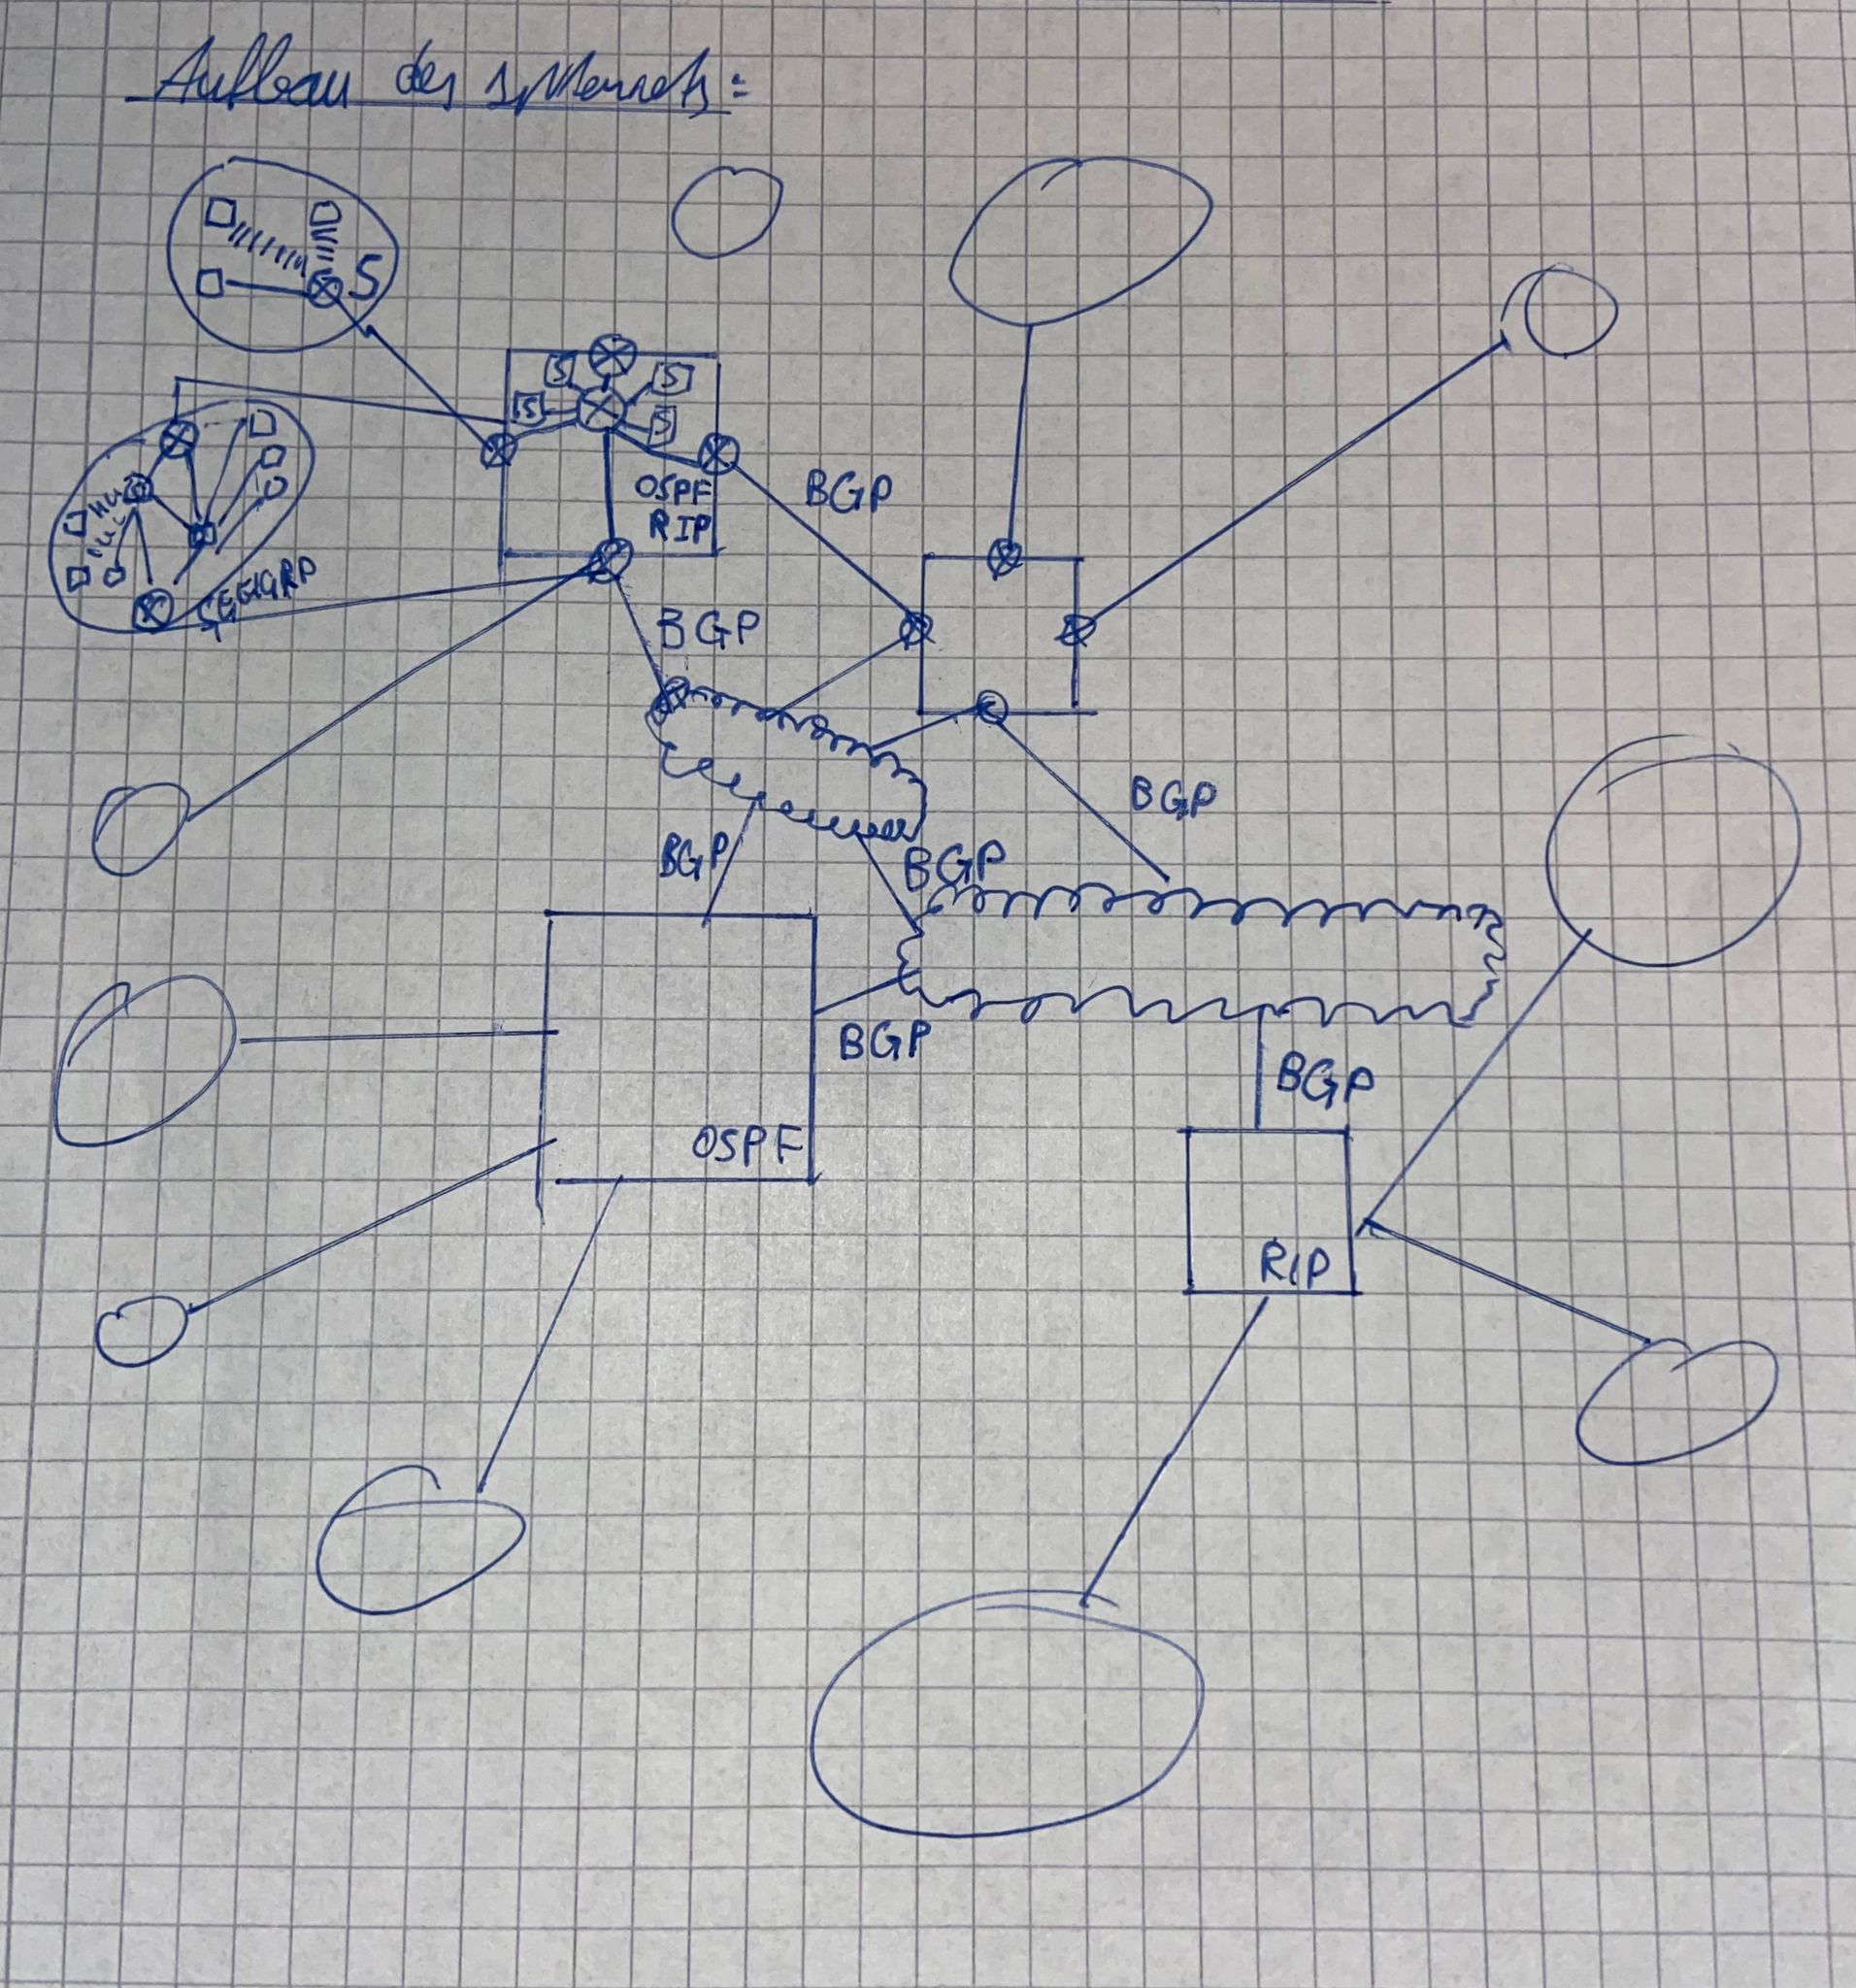 Aufbau des Internets:
S
S
S
S
S
OSPF
RIP
BGP
EIGRP
BGP
BGP
BGP
BGP
BGP
BGP
OSPF
RIP